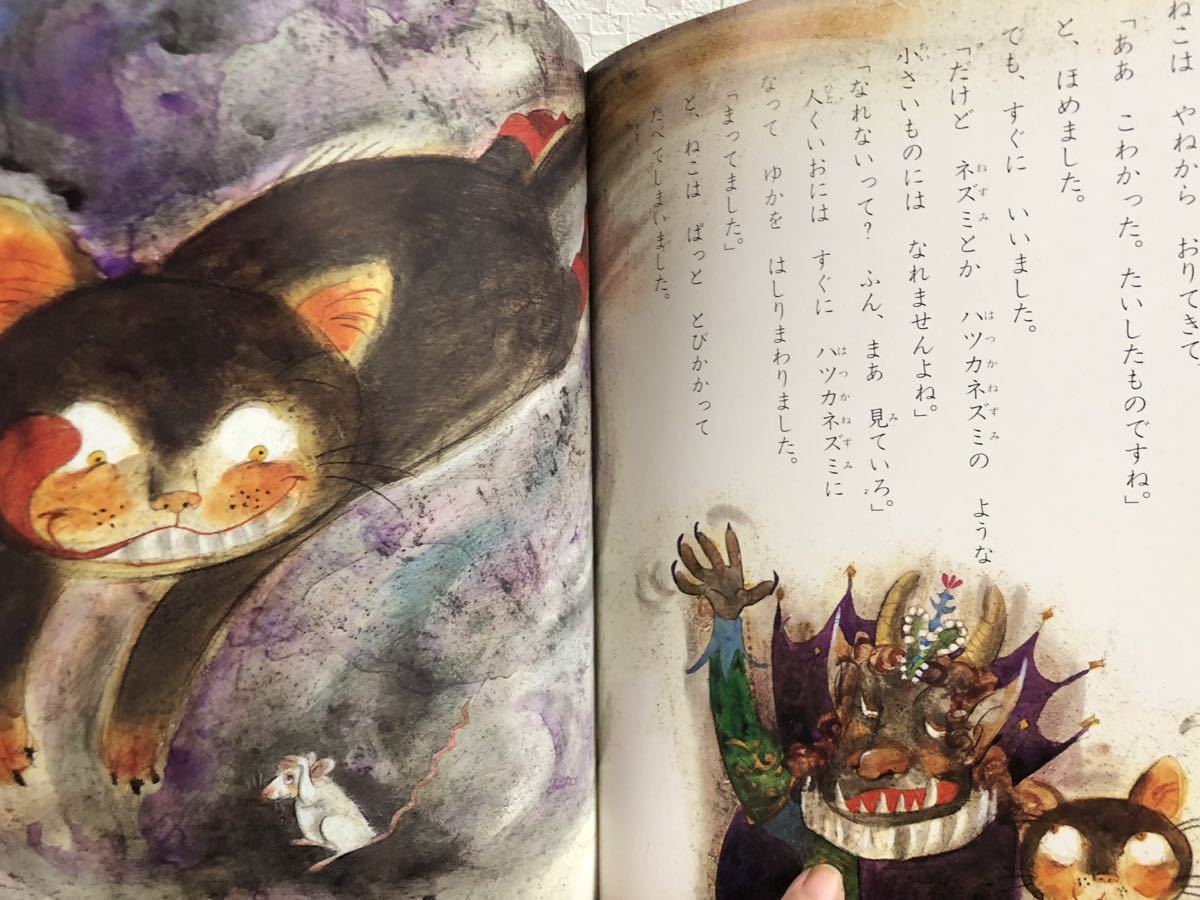 ねこは やねから おりてきて、
「ああ こわかった。たいしたものですね。」
と、ほめました。
でも、すぐに いいました。
「だけど ネズミとか ハツカネズミの ような
小さいものには なれませんよね。」
「なれないって? ふん、まあ 見ていろ。」
人くいおには すぐに ハツカネズミに
なって ゆかを はしりまわりました。
「まってました。」
と、ねこは ぱっと とびかかって
たべてしまいました。